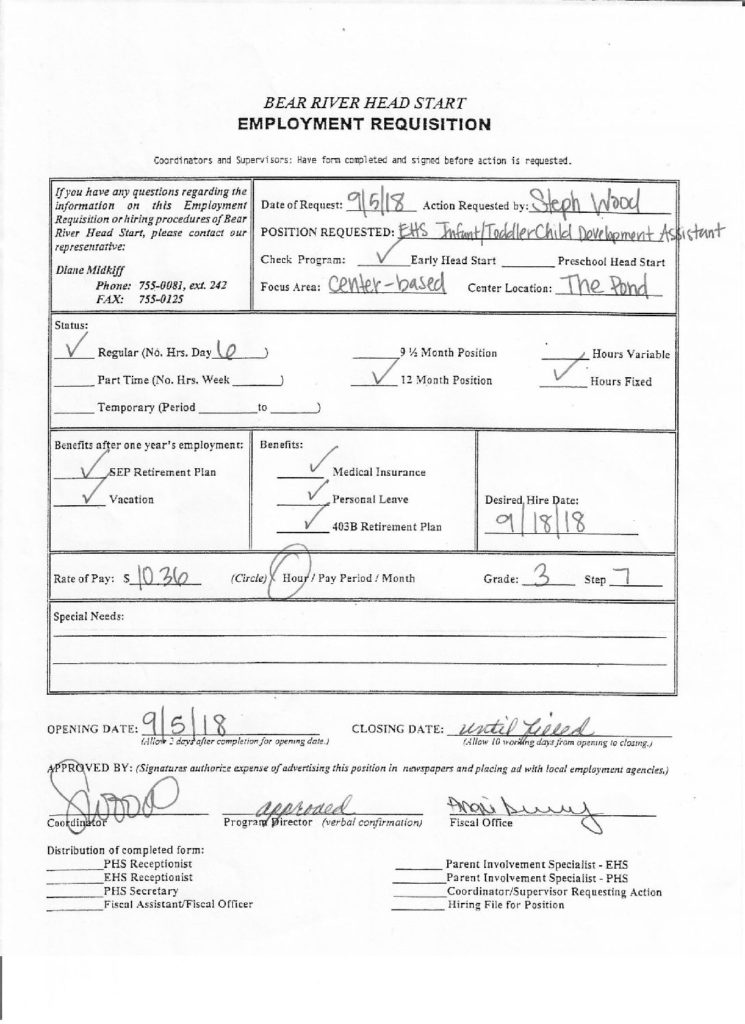 BEAR RIVER HEAD START
EMPLOYMENT REQUISITION
Coordinators and Supervisors: Have form completed and signed before action is requested.
If you have any questions regarding the
information on this Employment
Requisition or hiring procedures of Bear
River Head Start, please contact our
representative:
Diane Midkiff
Phone: 755-0081, ext. 242
FAX: 755-0125
Date of Request: 9/5/18 Action Requested by: Steph Wood
POSITION REQUESTED: EHS Infant/Toddler Child Development Assistant
Check Program: ✓ Early Head Start ______ Preschool Head Start
Focus Area: Center-based Center Location: The Pond
Status:
✓ Regular (No. Hrs. Day 6 )
______ Part Time (No. Hrs. Week ______)
______ Temporary (Period ______ to ______)
______ 9 ½ Month Position
✓ 12 Month Position
______ Hours Variable
✓ Hours Fixed
Benefits after one year's employment:
✓ SEP Retirement Plan
✓ Vacation
Benefits:
✓ Medical Insurance
✓ Personal Leave
✓ 403B Retirement Plan
Desired Hire Date:
9/18/18
Rate of Pay: $ 10.36 (Circle) Hour / Pay Period / Month Grade: 3 Step 7
Special Needs:
OPENING DATE: 9/5/18 CLOSING DATE: until filled
(Allow 2 days after completion for opening date.) (Allow 10 working days from opening to closing.)
APPROVED BY: (Signatures authorize expense of advertising this position in newspapers and placing ad with local employment agencies.)
SWood approved
Coordinator Program Director (verbal confirmation) Fiscal Office
Distribution of completed form:
______ PHS Receptionist
______ EHS Receptionist
______ PHS Secretary
______ Fiscal Assistant/Fiscal Officer
______ Parent Involvement Specialist - EHS
______ Parent Involvement Specialist - PHS
______ Coordinator/Supervisor Requesting Action
______ Hiring File for Position